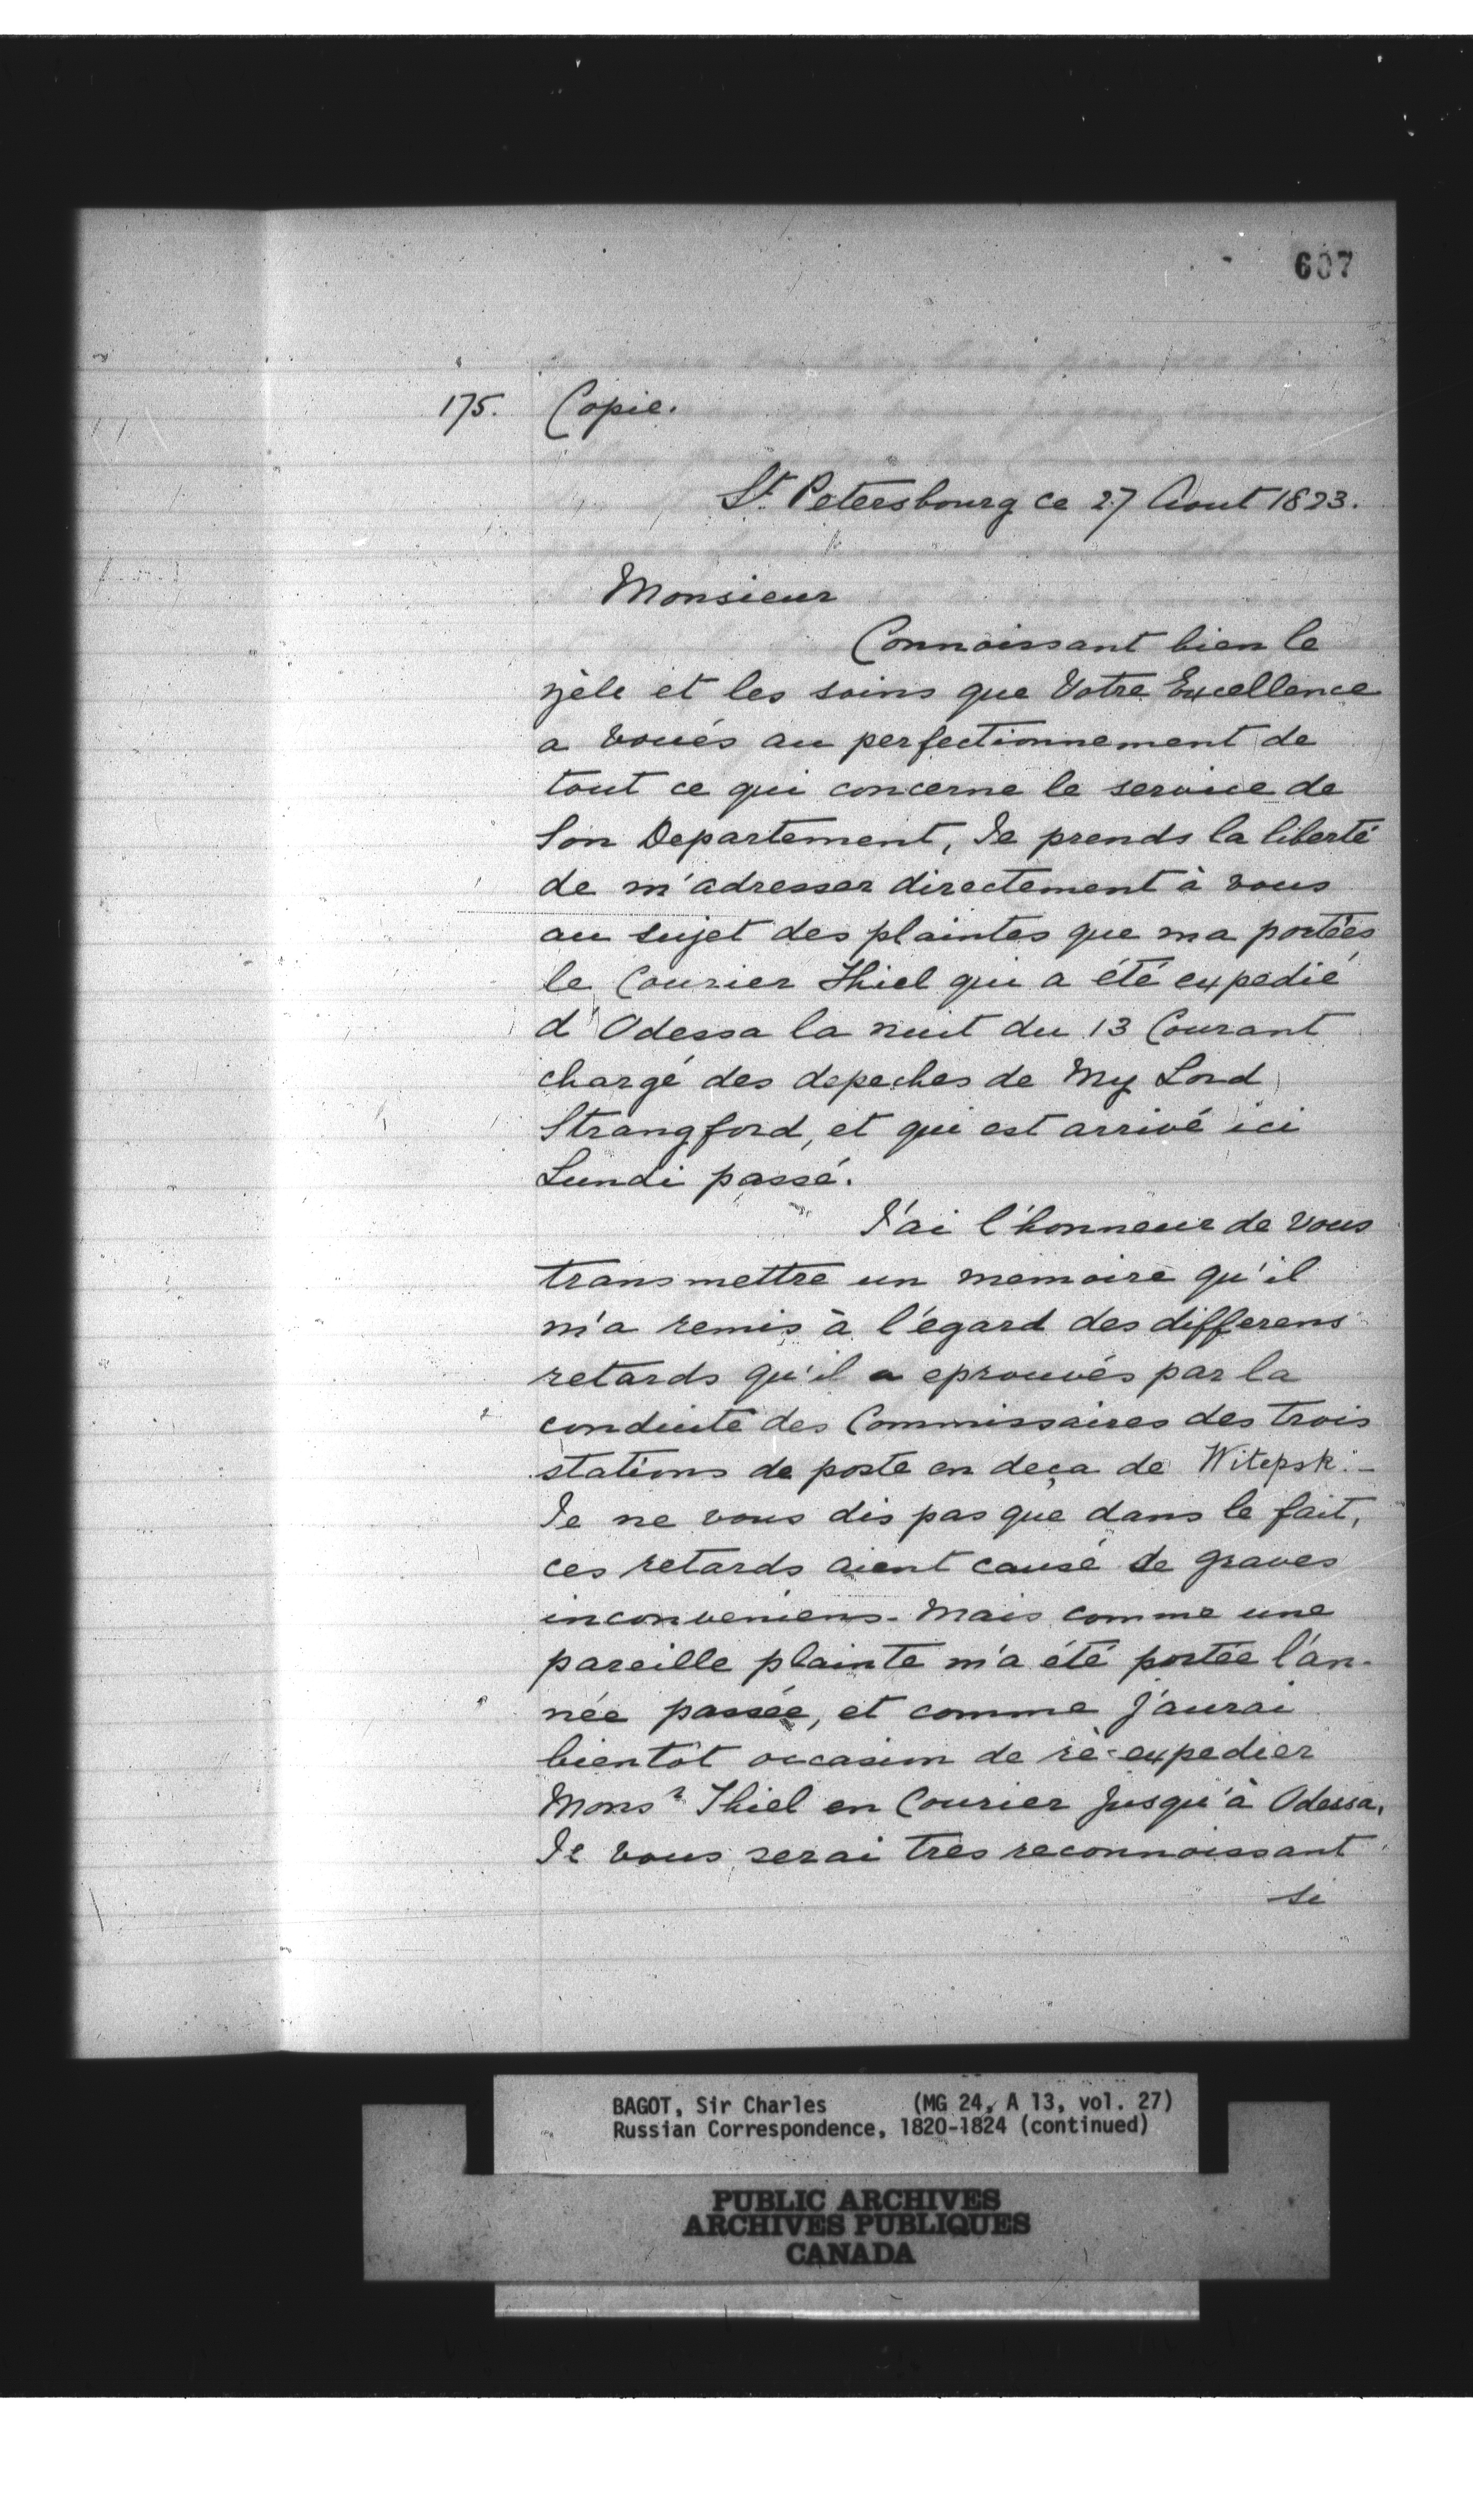 607
175. Copie.
St. Petersbourg ce 27 Aout 1823.
Monsieur
Connoissant bien le
zèle et les soins que Votre Excellence
a voués au perfectionnement de
tout ce qui concerne le service de
Son Departement, Je prends la liberté
de m'adresser directement à vous
au sujet des plaintes que m'a portées
le Courier Thiel qui a été expedié
d'Odessa la nuit du 13 Courant
chargé des depeches de My Lord
Strangford, et qui est arrivé ici
Lundi passé.
J'ai l'honneur de vous
transmettre un memoire qu'il
m'a remis à l'égard des differens
retards qu'il a eprouvés par la
conduite des Commissaires des trois
stations de poste en deça de Witepsk.–
Je ne vous dis pas que dans le fait,
ces retards aient causé de graves
inconveniens. Mais comme une
pareille plainte m'a été portée l'an-
née passée, et comme j'aurai
bientôt occasion de rè-expedier
Monsr Thiel en Courier jusqu'à Odessa,
Je vous serai tres reconnoissant
si
BAGOT, Sir Charles (MG 24, A 13, vol. 27)
Russian Correspondence, 1820-1824 (continued)
PUBLIC ARCHIVES
ARCHIVES PUBLIQUES
CANADA